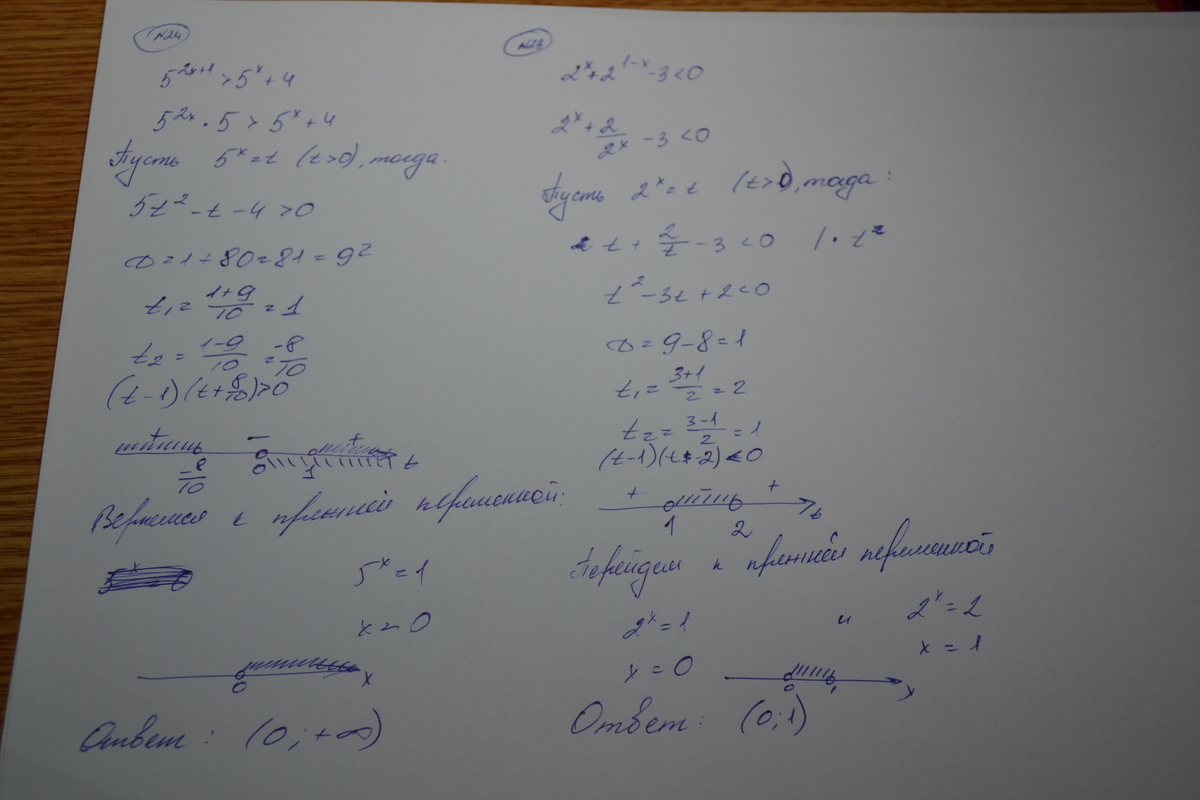 №24
5^{2x+1} > 5^x + 4
5^{2x} · 5 > 5^x + 4
Пусть 5^x = t (t>0), тогда:
5t^2 - t - 4 > 0
D = 1 + 80 = 81 = 9^2
t₁ = (1+9)/10 = 1
t₂ = (1-9)/10 = -8/10
(t-1)(t+8/10)>0
+ − +
-8/10 0 1 t
Вернемся к прежней переменной:
5^x = 1
x = 0
0 x
Ответ: (0; +∞)
№23
2^x + 2^{1-x} - 3 < 0
2^x + 2/2^x - 3 < 0
Пусть 2^x = t (t>0), тогда:
t + 2/t - 3 < 0 | · t
t^2 - 3t + 2 < 0
D = 9 - 8 = 1
t₁ = (3+1)/2 = 2
t₂ = (3-1)/2 = 1
(t-1)(t-2) < 0
+ − +
1 2 t
Перейдем к прежней переменной
2^x = 1 и 2^x = 2
x = 0 x = 1
0 1 x
Ответ: (0; 1)